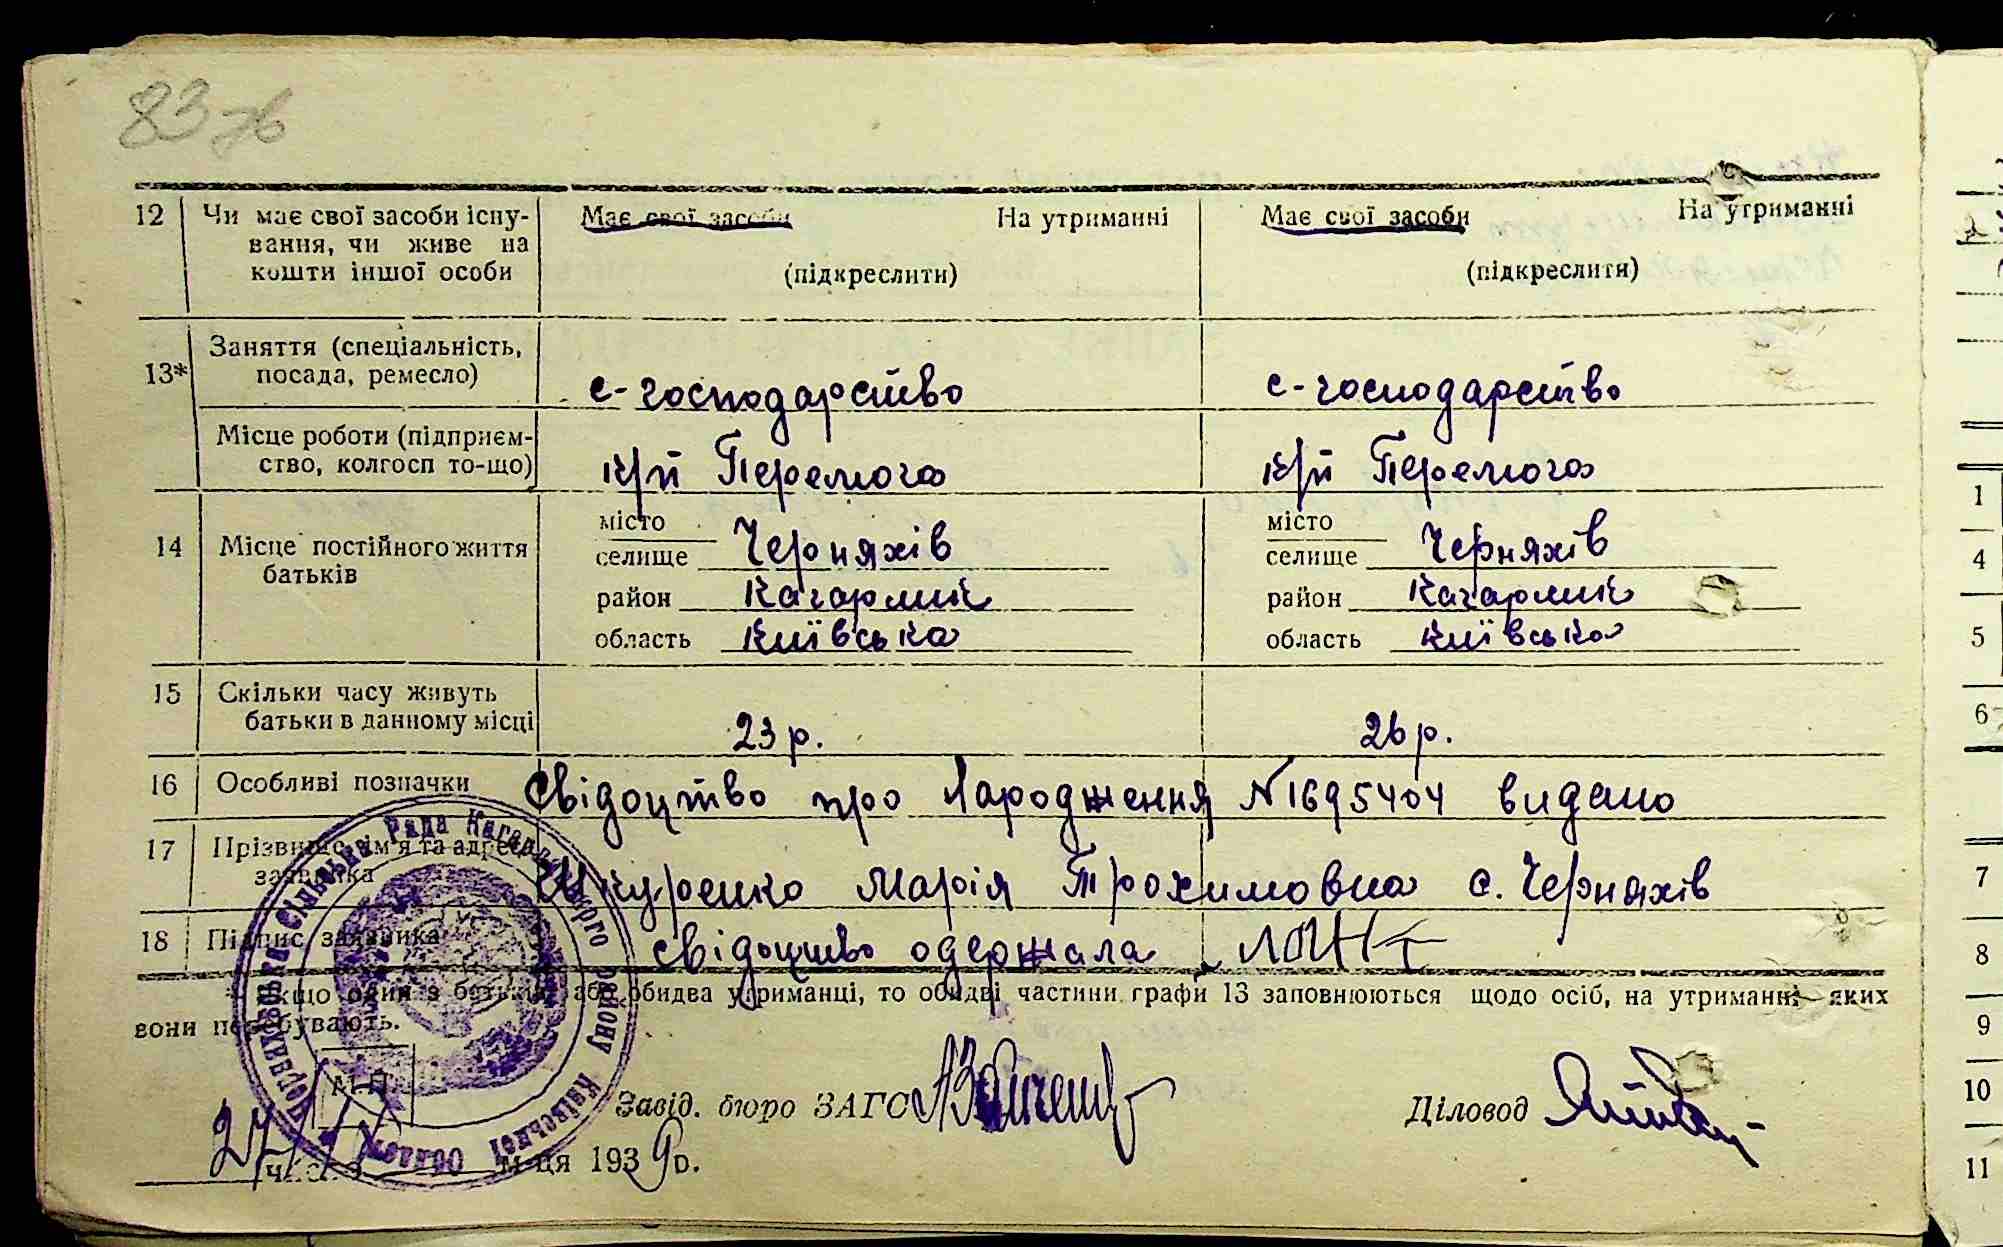 83 зв
12 Чи має свої засоби існу- Має свої засоби На утриманні Має свої засоби На утриманні
вання, чи живе на
кошти іншої особи (підкреслити) (підкреслити)
13* Заняття (спеціальність,
посада, ремесло) с-господарство с-господарство
Місце роботи (підприєм-
ство, колгосп то-що) к/й Перемога к/й Перемога
місто місто
14 Місце постійного життя селище Черняхів селище Черняхів
батьків
район Кагарлик район Кагарлик
область Київська область Київська
15 Скільки часу живуть
батьки в данному місці 23 р. 26 р.
16 Особливі позначки Свідоцтво про Народження N1695404 видано
17 Прізвище, ім'я та адреса
заявника Шкуренко Марія Трохимовна с. Черняхів
18 Підпис заявника свідоцтво одержала
* Якщо один з батьків або обидва утриманці, то обидві частини графи 13 заповнюються щодо осіб, на утриманні яких
вони перебувають.
М.П.
Завід. бюро ЗАГС Діловод
27 числа м-ця 1939 р.
Черняхівська Сільська Рада Кагарлицького району Київської Области
1
4
5
6
7
8
9
10
11